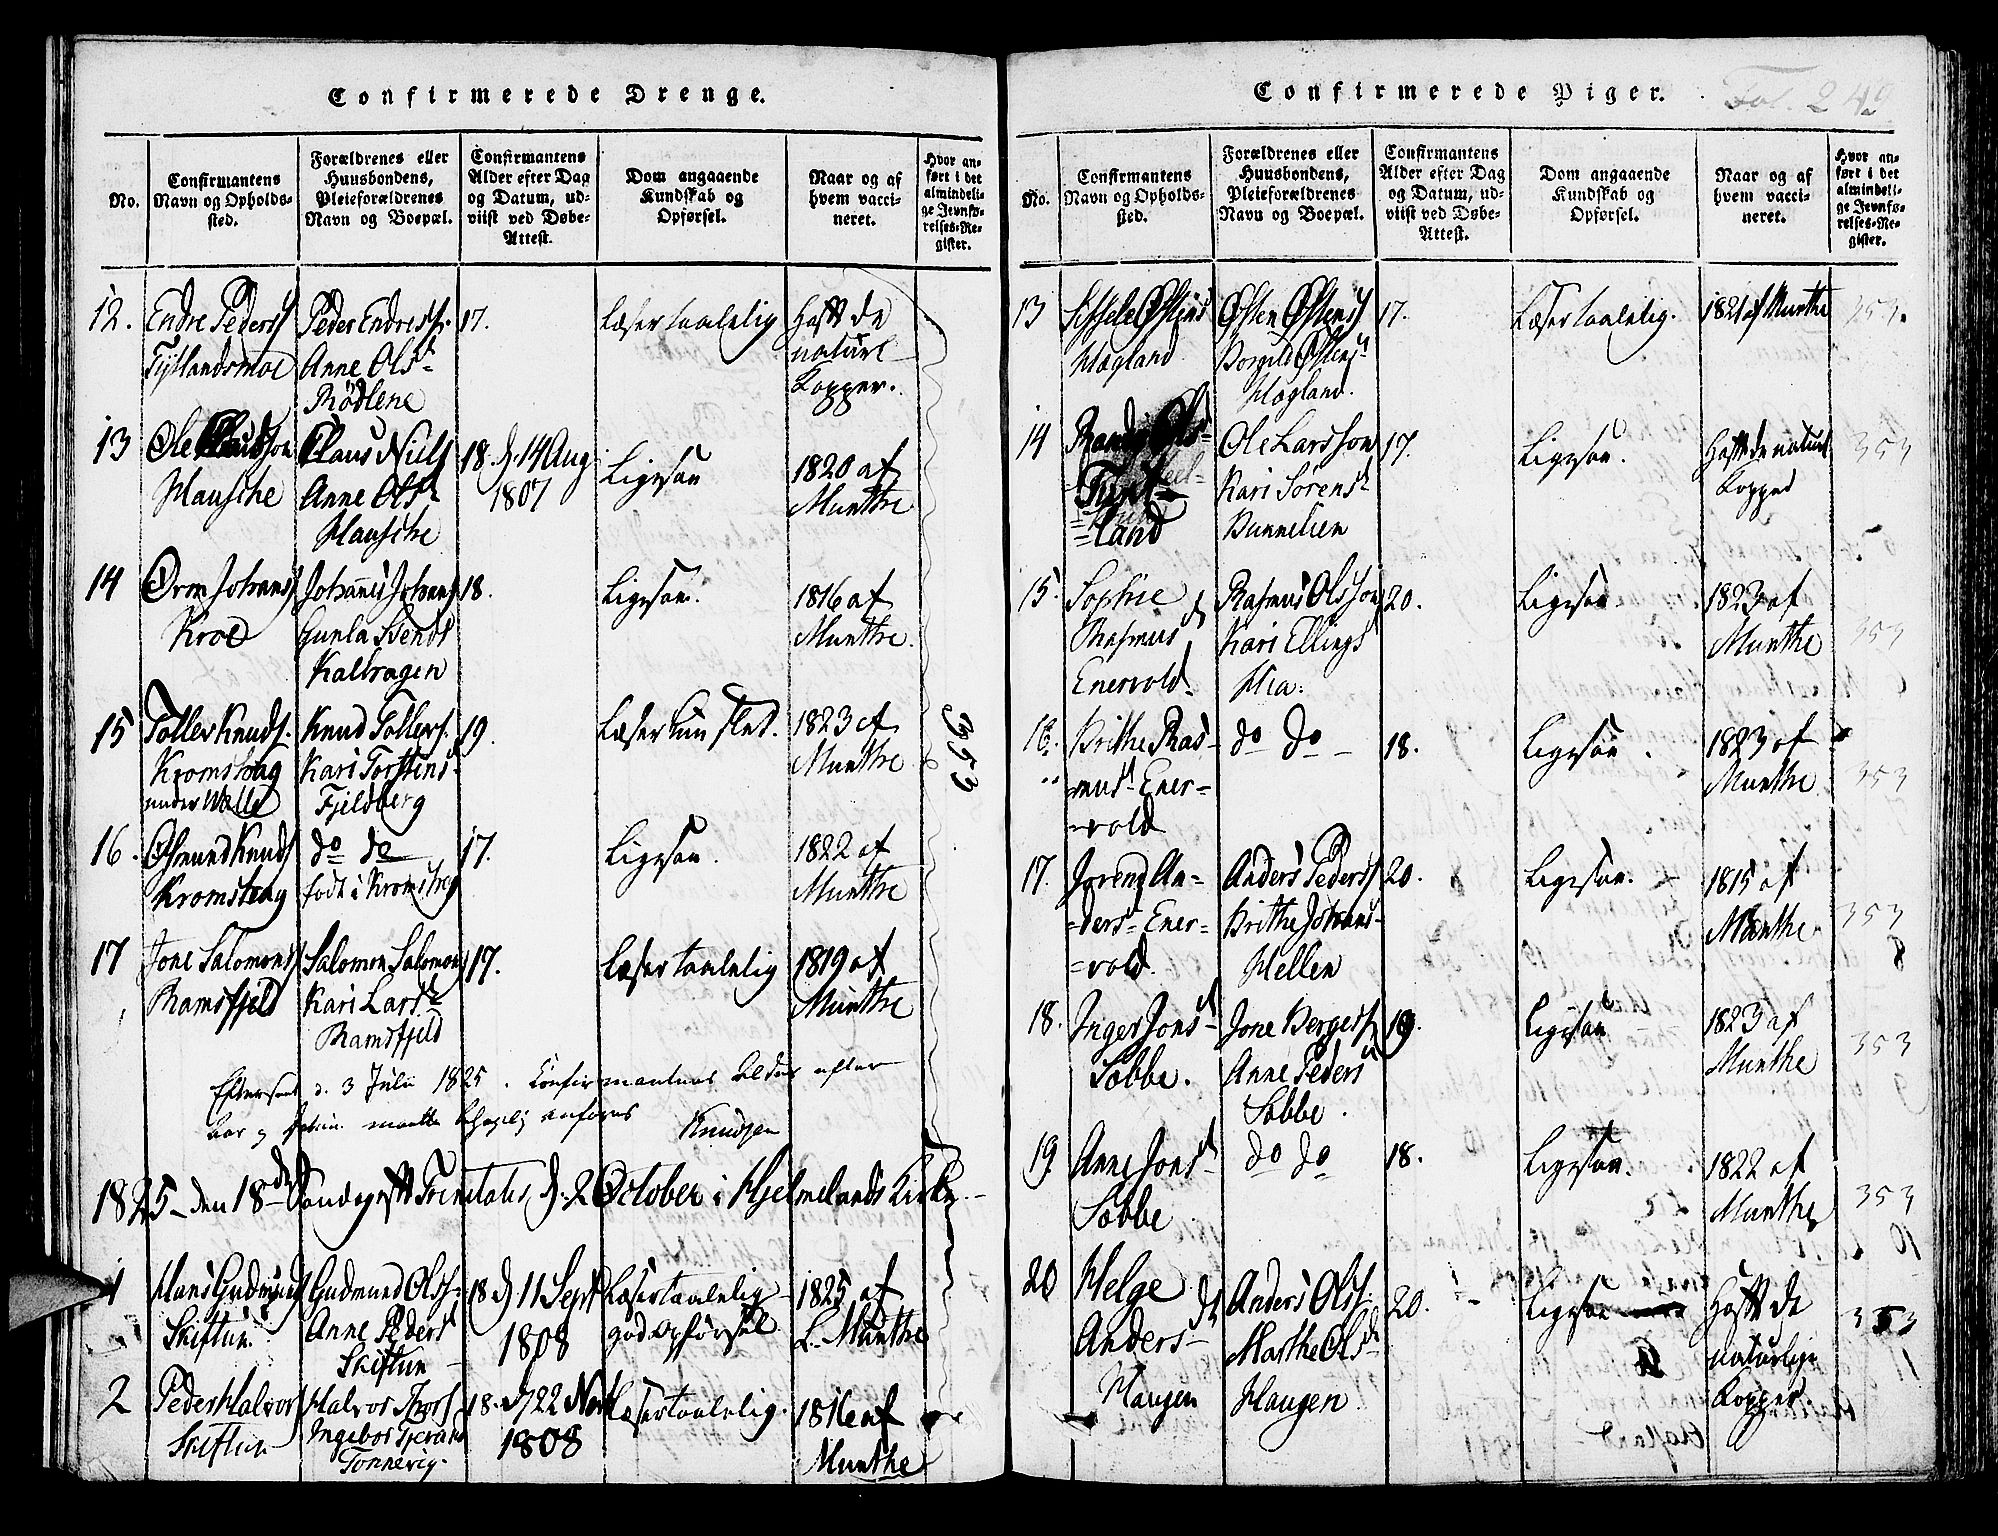 Confirmerede Drenge.
No.
Confirmantens
Navn og Opholds-
sted.
Forældrenes eller
Huusbondens,
Pleieforældrenes
Navn og Boepæl.
Confirmantens
Alder efter Dag
og Datum, ud-
viist ved Døbe-
Attest.
Dom angaaende
Kundskab og
Opførsel.
Naar og af
hvem vacci-
neret.
Hvor an-
ført i det
almindeli-
ge Jevnfø-
relses-Re-
gister.
12.
Endre Peders
Tytlandsmoe
Peder Endress.
Anne Olsd.
Rødlene
17.
Læser taalelig
Havt de
naturl
Kopper.
13
Ole Clausson
Hausche
Claus Niels
Anne Olsd.
Hausche
18. d. 14 Aug
1807
Ligesaa
1820 af
Munthe
14
Orm Johans
Kroe
Johannes Johans
Gunla Svends
Kalhagen
18.
Ligesaa.
1816 af
Munthe.
15
Toller Knuds.
Kromshag
under Walle
Knud Tollers.
Kari Torstens
Fjeldberg
19.
Læser kun slet.
1823 af
Munthe
353
16.
Osmund Knuds
Kromshag
do do
født i Kromshag
17.
Ligesaa.
1822 af
Munthe
17
Jone Salomons
Ramsfjeld
Salomon Salomons
Kari Larsd.
Ramsfjeld
17.
Læser taalelig
1819 af
Munthe
Eftersees d. 3 Julii 1825. Confirmanternes Alder efter
Aar og Datum maatte anføres
Knudsen
1825 – den 18de Søndag eft Trinitatis, d. 2 October i Hjelmelands Kirke.
1
Hans Gudmunds
Skiftun
Gudmund Ols.
Anne Peders
Skiftun
18 d 11 Sept
1808
Læser taalelig
god Opførsel
1825 af
L. Munthe
2
Peder Halvors
Skiftun
Halvor Thors
Ingebor Tjerans
Tonnevig.
18. d 22 Nov
1808
Læser taalelig.
1816 af
Munthe
Confirmerede Piger.
Fol. 249
No.
Confirmantens
Navn og Opholds-
sted.
Forældrenes eller
Huusbondens,
Pleieforældrenes
Navn og Boepæl.
Confirmantens
Alder efter Dag
og Datum, ud-
viist ved Døbe-
Attest.
Dom angaaende
Kundskab og
Opførsel.
Naar og af
hvem vacci-
neret.
Hvor an-
ført i det
almindeli-
ge Jevnfø-
relses-Re-
gister.
13
Sissele Østens
Høgland
Østen Østens
Borgild Østens
Høgland.
17.
Læser taalelig.
1821 af Munthe
353.
14
Randi Ols-
=land
Ole Larsson
Kari Sørensd.
Bunnelien
17.
Ligesaa.
Havt de naturl
Kopper
353
15.
Sophie
Rasmusd
Enervold.
Rasmus Olsson
Kari Ellings
Hia.
20.
Ligesaa
1823 af
Munthe
353
16.
Brithe Ras-
musd. Ener=
=vold
do do
18.
Ligesaa.
1823 af
Munthe
353
17.
Jorend An-
=dersd. Ener-
=vold.
Anders Peders
Brithe Johans-
Hellen
20.
Ligesaa.
1815 af
Munthe
353
18.
Inger Jonsd
Søbbe.
Jone Bergers
Anne Peders
Søbbe.
19
Ligesaa
1823 af
Munthe
353
19
Anne Jonsd
Søbbe
do do
18.
Ligesaa.
1822 af
Munthe
353
20
Helge
Andersd
Haugen
Anders Ols.
Marthe Olsd
Haugen
20.
Ligesaa
Havt de
naturlige
Kopper
353